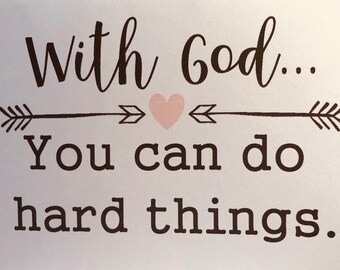 With God...
You can do
hard things.